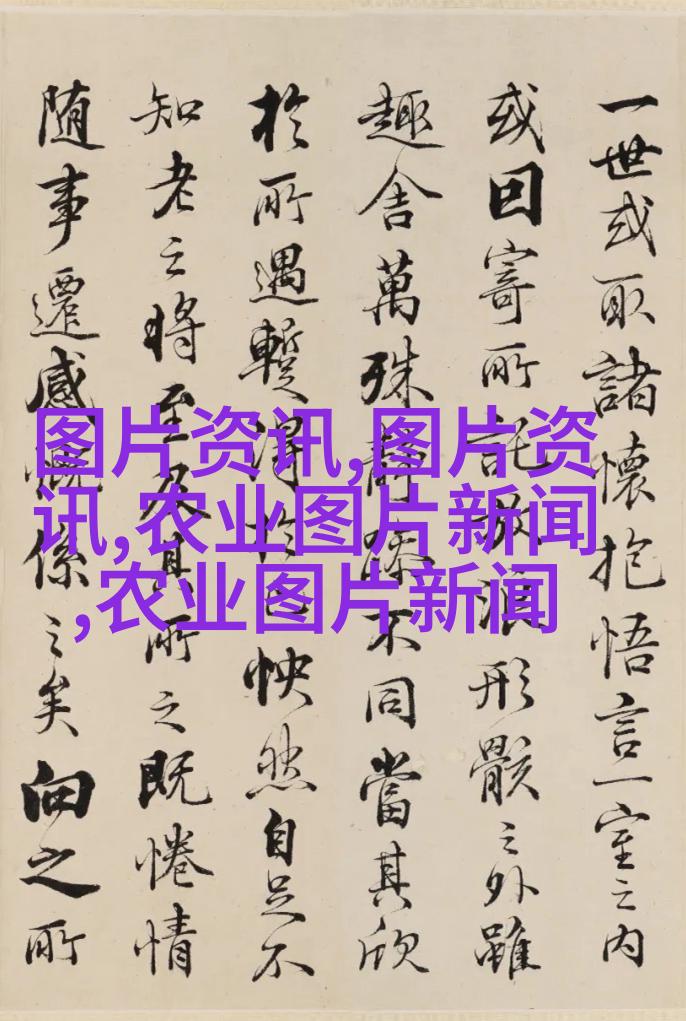 一世或取諸懷抱悟言一室之内
或因寄所託放浪形骸之外雖
趣舍萬殊静躁不同當其欣
於所遇蹔得於己怏然自足不
知老之將至及其所之既惓情
随事遷感慨係之矣向之所
图片资讯,图片资
讯,农业图片新闻
,农业图片新闻